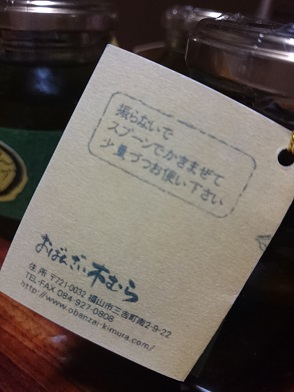 振らないで
スプーンでかきまぜて
少量づつお使い下さい
おばんざい木むら
住所 〒721-0032 福山市三吉町南2-9-22
TEL・FAX 084-927-0808
http://www.obanzai-kimura.com/